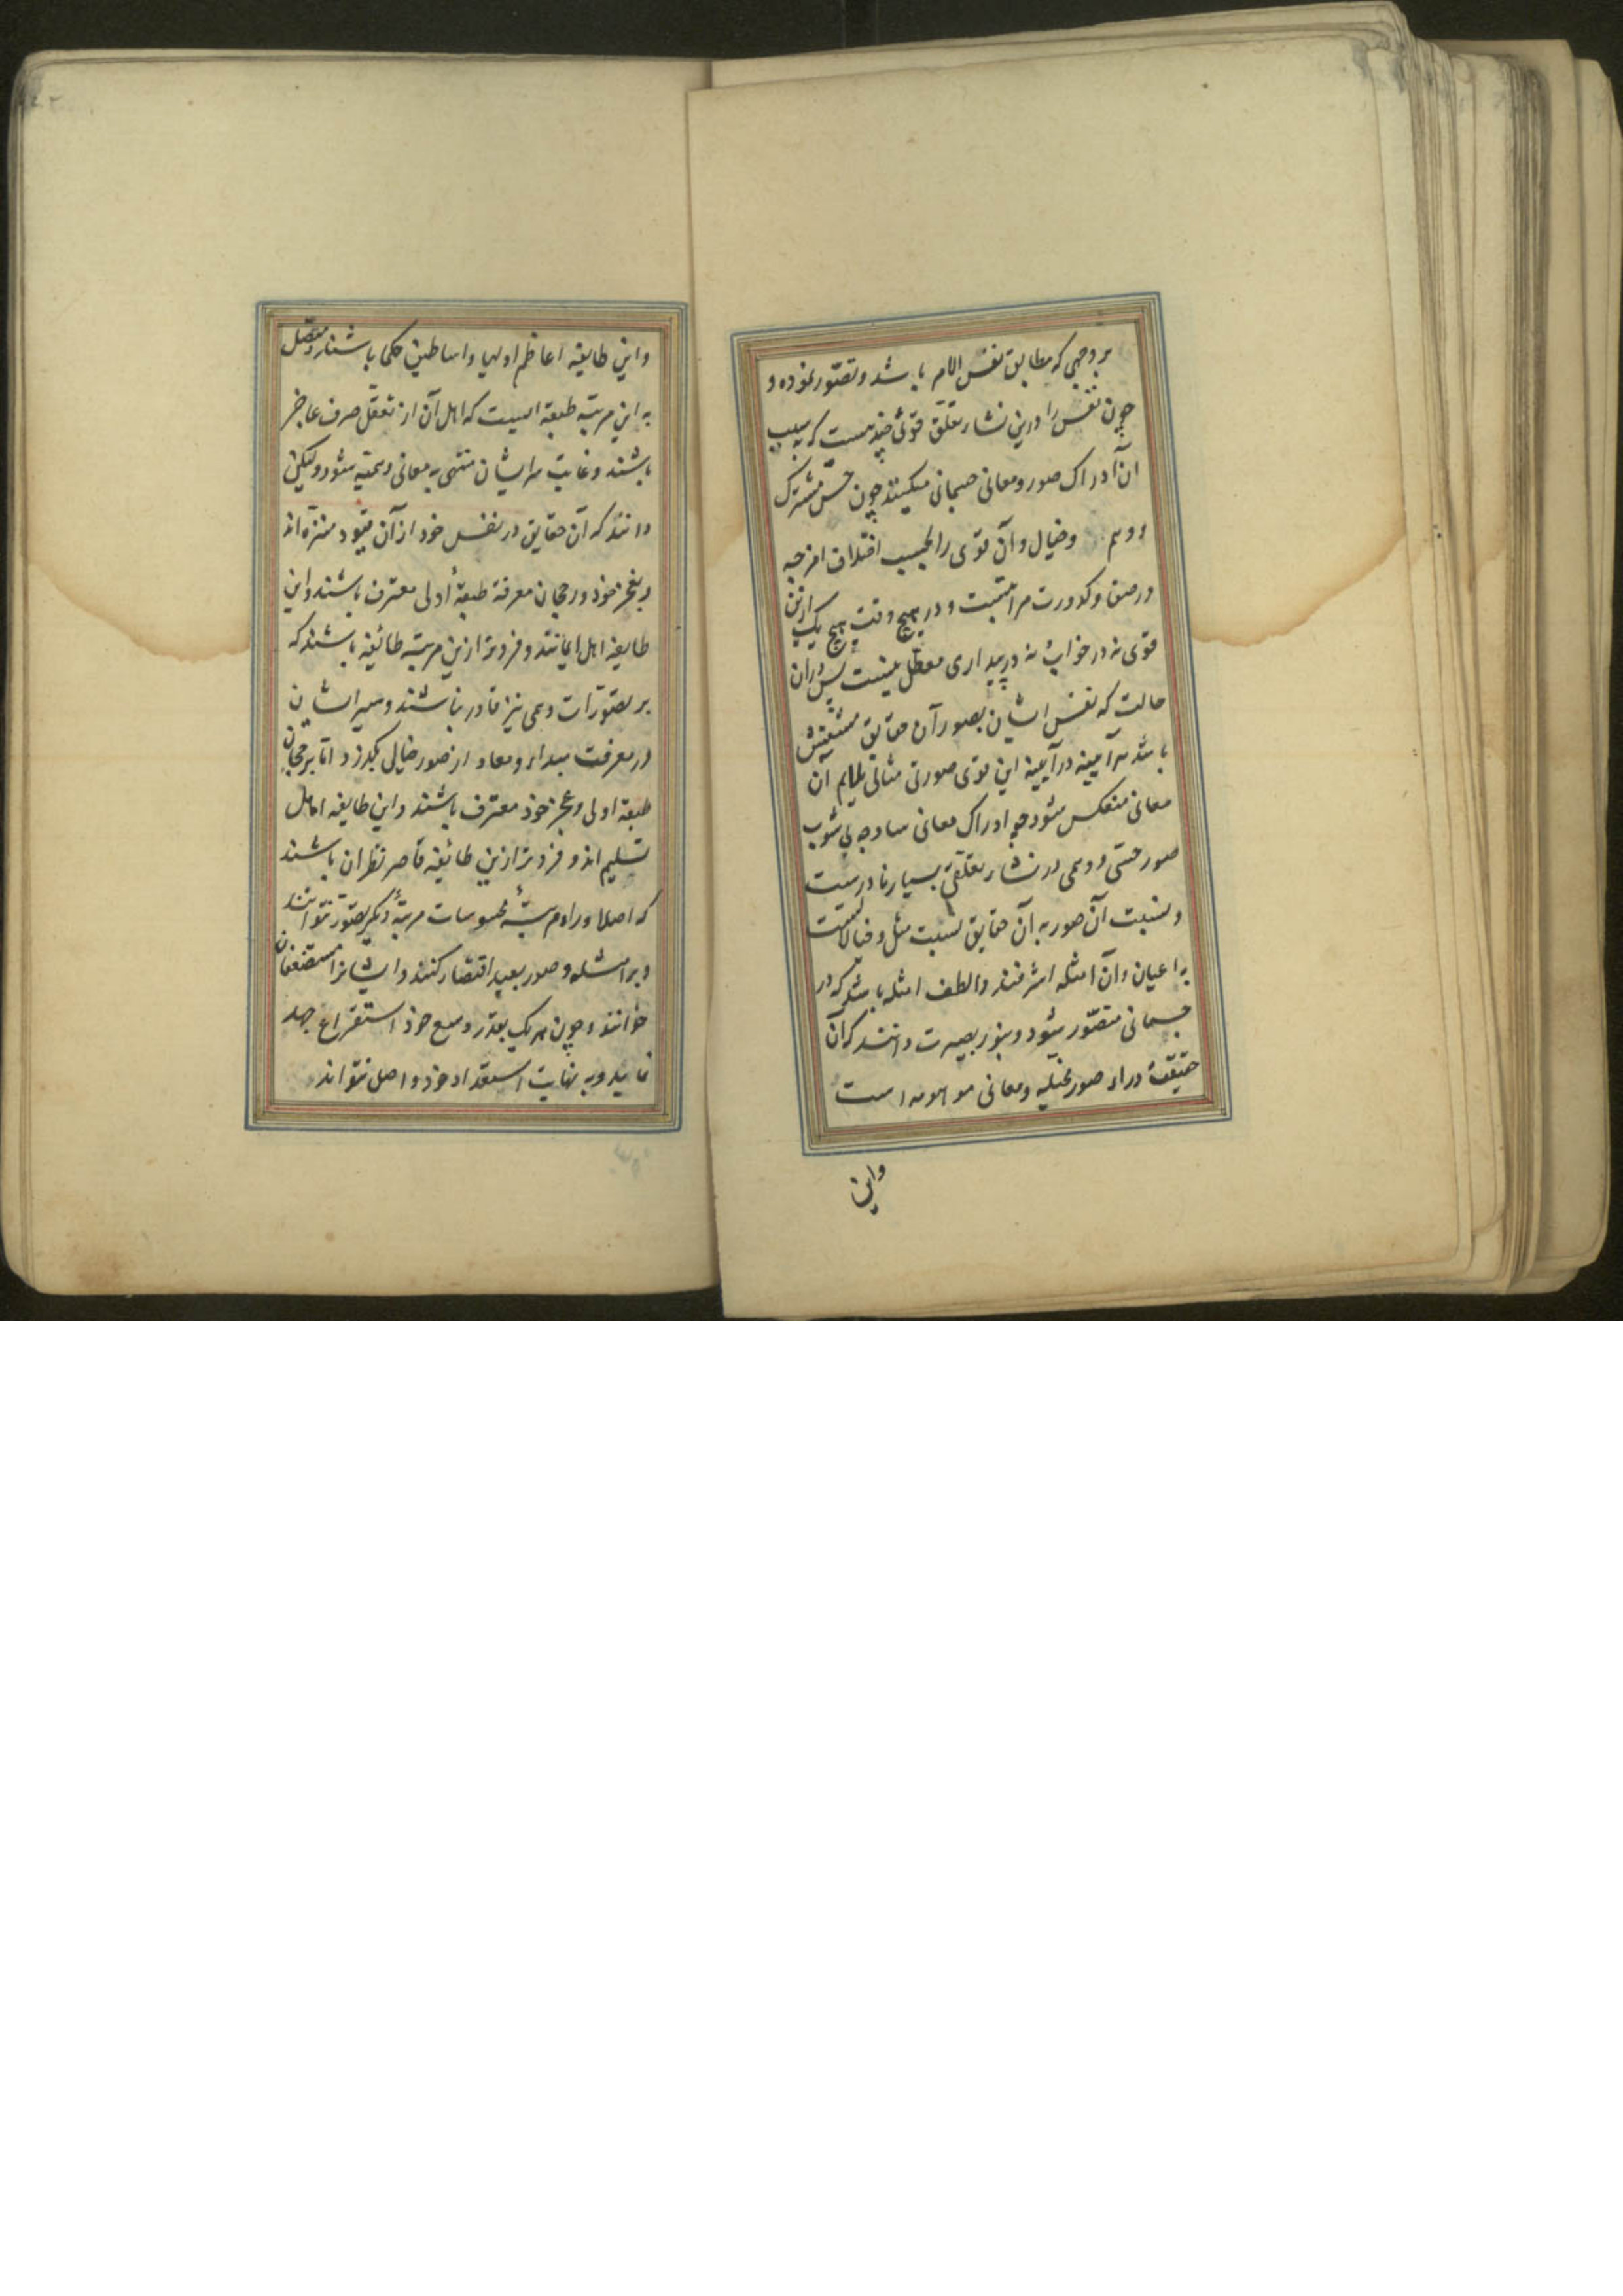 بر وجهی که مطابق نفس الامر باشد و تصور نموده و
چون نفس را درین نشاء تعلق قوی چند هست که به سبب
آن ادراک صور و معانی جسمانی میکند چون حس مشترک
و وهم و خیال و آن قوی را بحسب اختلاف امزجه
در صفا و کدورت مراتبست و در هیچ وقت هیچ یک ازین
قوی نه در خواب نه در بیداری معطل نیست پس در آن
حالت که نفس ایشان بصور آن حقایق منتقش
باشد هر آیینه در آیینه این قوی صورتی مثالی ملایم آن
معانی منعکس شود چه ادراک معانی ساده بی شوب
صور حسی و وهمی در نشاء تعلقی بسیار نادرست
و نسبت آن صور به آن حقایق نسبت مثل و خیالاتست
به اعیان و آن امثله اشرف و الطف امثله باشد که در
جسمانی متصور شود و بنور بصیرت دانند که آن
حقیقت وراء صور مخیله و معانی موهومه است
واین
واین طایفه اعاظم اولیا و اساطین حکما باشند و متصل
به این مرتبه طبقه ایست که اهل آن از تعقل صرف عاجز
باشند و غایت مر ایشان منتهی به معانی وهمیه شود و لیکن
دانند که آن حقایق در نفس خود از آن قیود منزه اند
و بعجز خود و رجحان معرفة طبقهٔ اولی معترف باشند و این
طایفه اهل ایمانند و فروتر ازین مرتبه طائفه باشند که
بر تصورات وهمی نیز قادر نباشند و سیر ایشان
در معرفت مبداء و معاد از صور خیالی نگذرد اما برجحان
طبقه اولی و عجز خود معترف باشند و این طایفه اهل
تسلیم اند و فروتر ازین طائفه قاصر نظران باشند
که اصلا وراء مرتبهٔ محسوسات مرتبهٔ دیگر تصور نتوانند
و بر امثله و صور بعید اقتصار کنند و ایشانرا مستضعفان
خوانند و چون هر یک بقدر وسع خود استفراغ جهد
نماید و به نهایت استعداد خود واصل نتواند